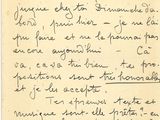 jusque chez toi Dimanche d'a-
bord, puis hier – je ne l'ai
pu faire et ne le pourrai pas
encore aujourd'hui – Ça
va, ça va très bien, tes pro-
positions sont très honorables
et je les accepte.
Tes épreuves texte et
musique sont-elles prêtes